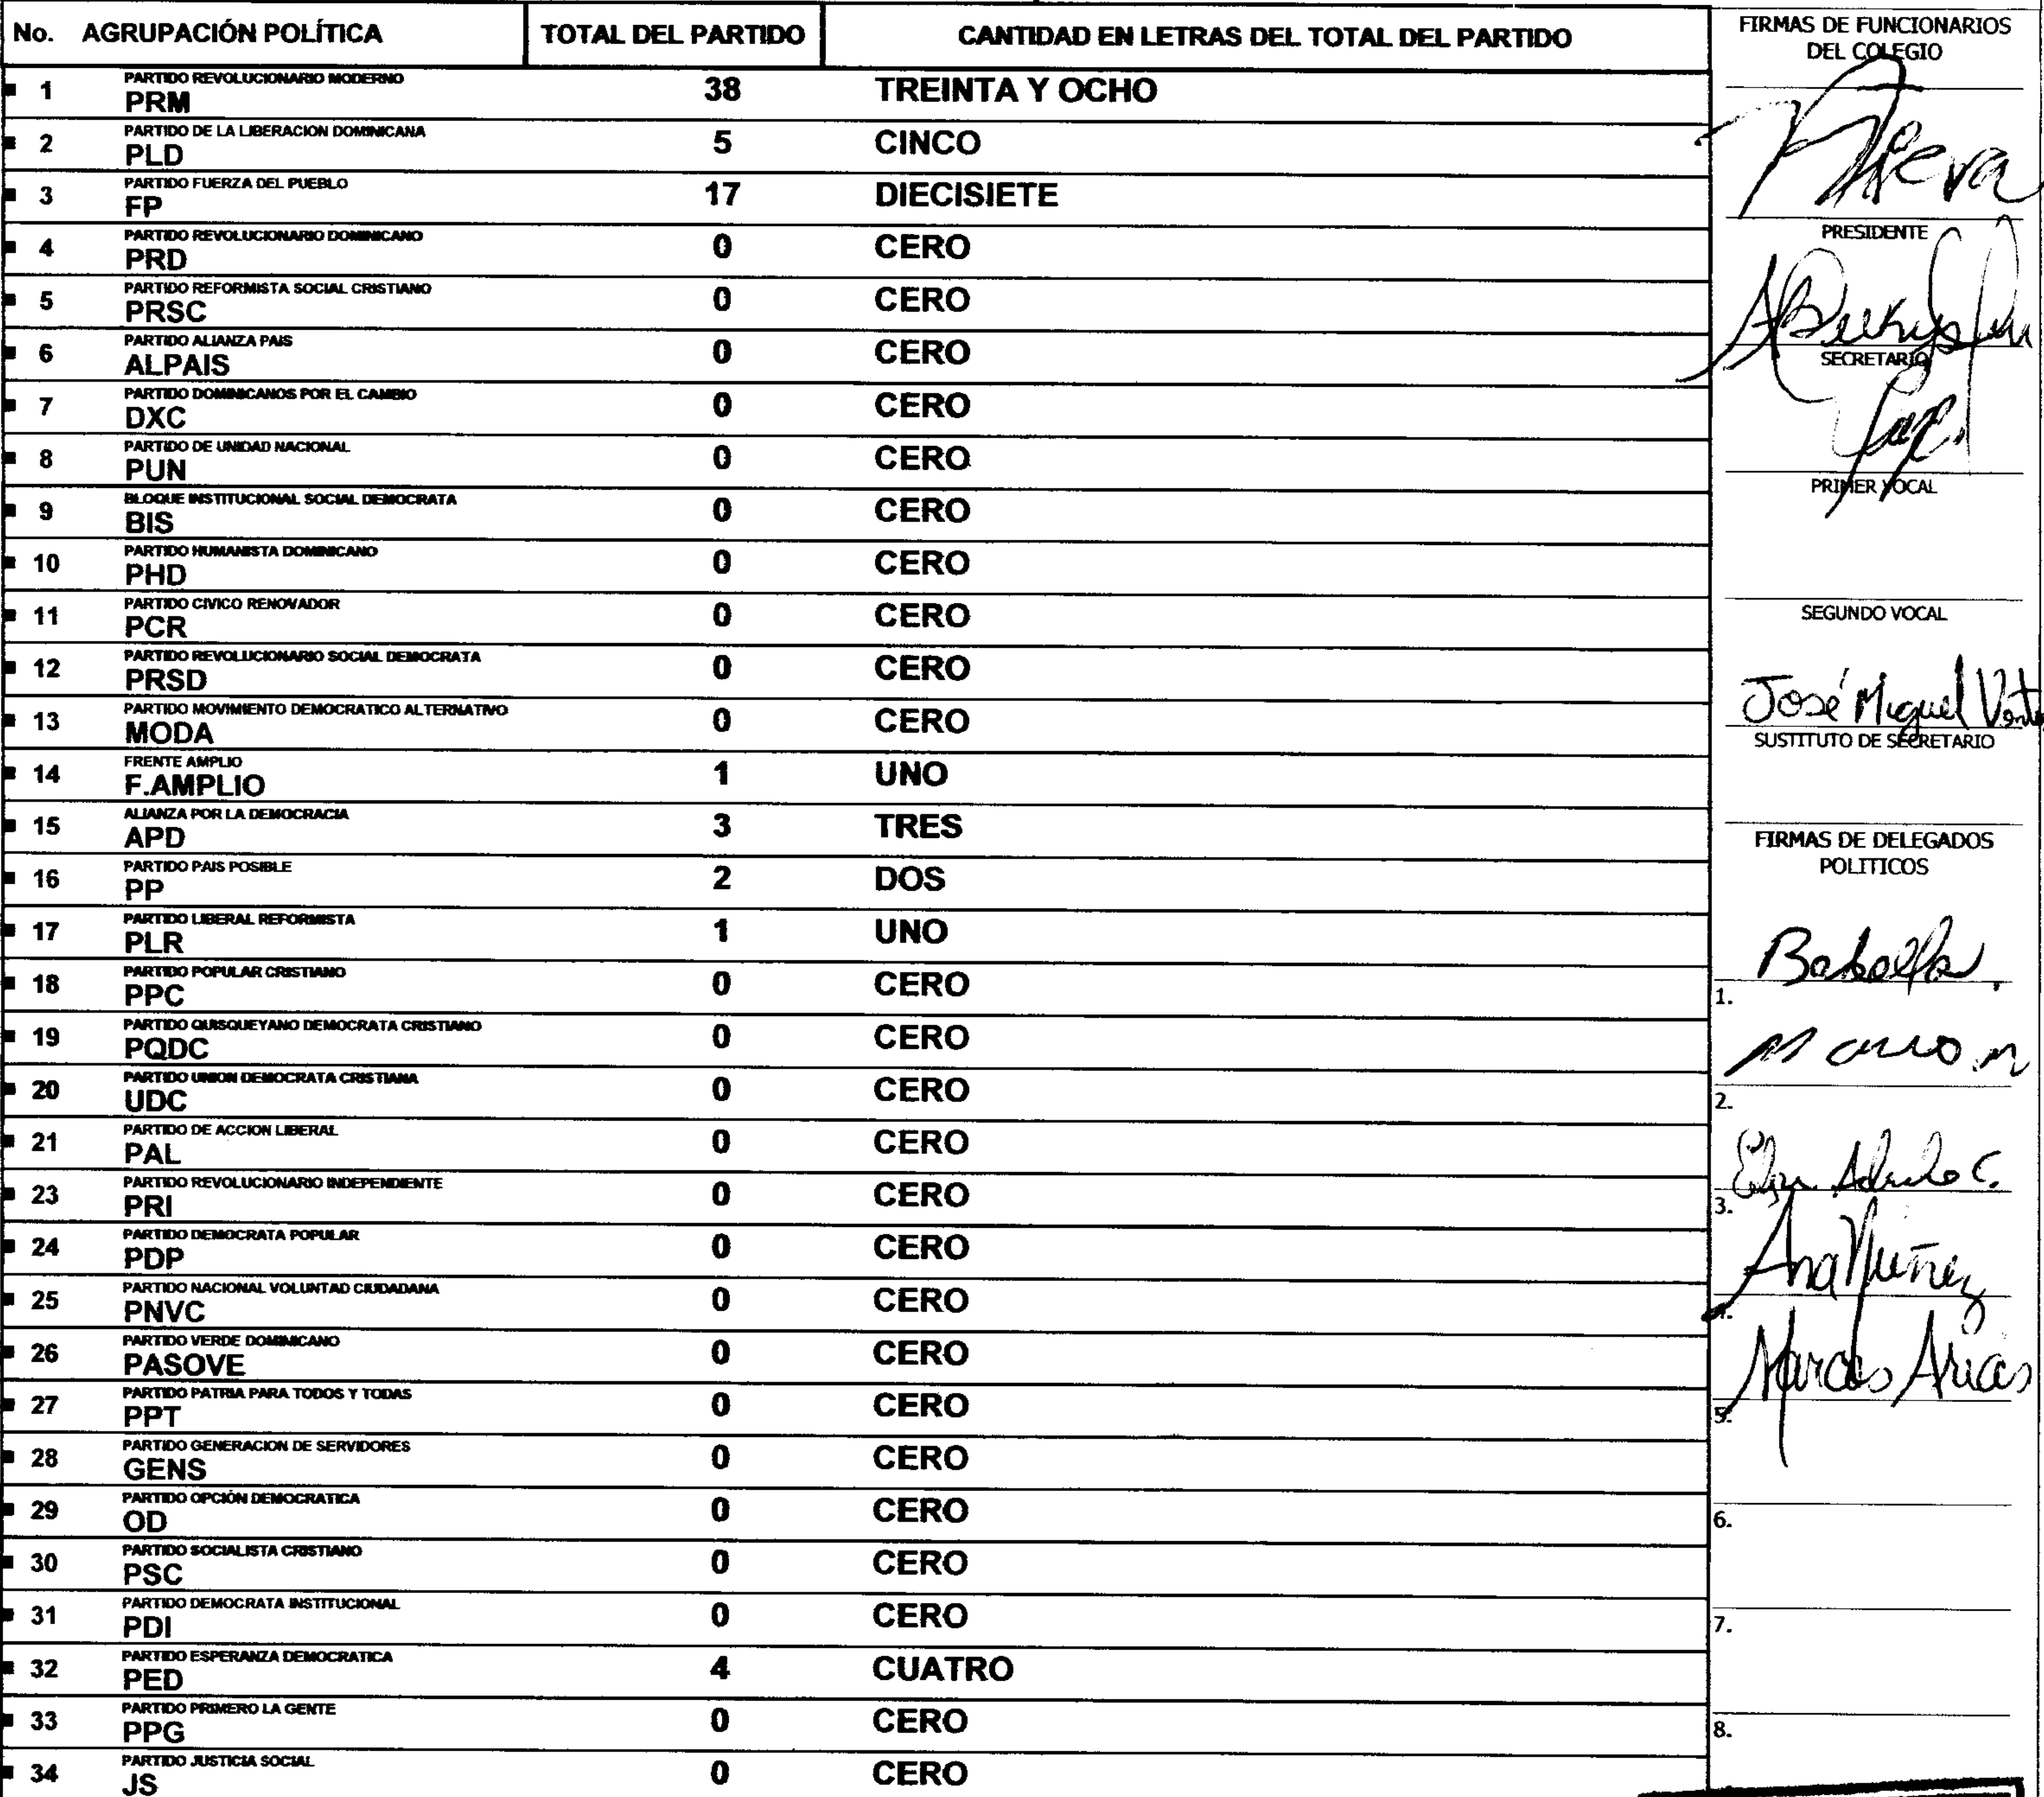 No. AGRUPACIÓN POLÍTICA TOTAL DEL PARTIDO CANTIDAD EN LETRAS DEL TOTAL DEL PARTIDO
1 PARTIDO REVOLUCIONARIO MODERNO
PRM 38 TREINTA Y OCHO
2 PARTIDO DE LA LIBERACION DOMINICANA
PLD 5 CINCO
3 PARTIDO FUERZA DEL PUEBLO
FP 17 DIECISIETE
4 PARTIDO REVOLUCIONARIO DOMINICANO
PRD 0 CERO
5 PARTIDO REFORMISTA SOCIAL CRISTIANO
PRSC 0 CERO
6 PARTIDO ALIANZA PAIS
ALPAIS 0 CERO
7 PARTIDO DOMINICANOS POR EL CAMBIO
DXC 0 CERO
8 PARTIDO DE UNIDAD NACIONAL
PUN 0 CERO
9 BLOQUE INSTITUCIONAL SOCIAL DEMOCRATA
BIS 0 CERO
10 PARTIDO HUMANISTA DOMINICANO
PHD 0 CERO
11 PARTIDO CIVICO RENOVADOR
PCR 0 CERO
12 PARTIDO REVOLUCIONARIO SOCIAL DEMOCRATA
PRSD 0 CERO
13 PARTIDO MOVIMIENTO DEMOCRATICO ALTERNATIVO
MODA 0 CERO
14 FRENTE AMPLIO
F.AMPLIO 1 UNO
15 ALIANZA POR LA DEMOCRACIA
APD 3 TRES
16 PARTIDO PAIS POSIBLE
PP 2 DOS
17 PARTIDO LIBERAL REFORMISTA
PLR 1 UNO
18 PARTIDO POPULAR CRISTIANO
PPC 0 CERO
19 PARTIDO QUISQUEYANO DEMOCRATA CRISTIANO
PQDC 0 CERO
20 PARTIDO UNION DEMOCRATA CRISTIANA
UDC 0 CERO
21 PARTIDO DE ACCION LIBERAL
PAL 0 CERO
23 PARTIDO REVOLUCIONARIO INDEPENDIENTE
PRI 0 CERO
24 PARTIDO DEMOCRATA POPULAR
PDP 0 CERO
25 PARTIDO NACIONAL VOLUNTAD CIUDADANA
PNVC 0 CERO
26 PARTIDO VERDE DOMINICANO
PASOVE 0 CERO
27 PARTIDO PATRIA PARA TODOS Y TODAS
PPT 0 CERO
28 PARTIDO GENERACION DE SERVIDORES
GENS 0 CERO
29 PARTIDO OPCIÓN DEMOCRATICA
OD 0 CERO
30 PARTIDO SOCIALISTA CRISTIANO
PSC 0 CERO
31 PARTIDO DEMOCRATA INSTITUCIONAL
PDI 0 CERO
32 PARTIDO ESPERANZA DEMOCRATICA
PED 4 CUATRO
33 PARTIDO PRIMERO LA GENTE
PPG 0 CERO
34 PARTIDO JUSTICIA SOCIAL
JS 0 CERO
FIRMAS DE FUNCIONARIOS
DEL COLEGIO
PRESIDENTE
SECRETARIO
PRIMER VOCAL
SEGUNDO VOCAL
José Miguel
SUSTITUTO DE SECRETARIO
FIRMAS DE DELEGADOS
POLITICOS
1.
2.
3.
Ana Nuñez
4.
Marcos Arias
5.
6.
7.
8.